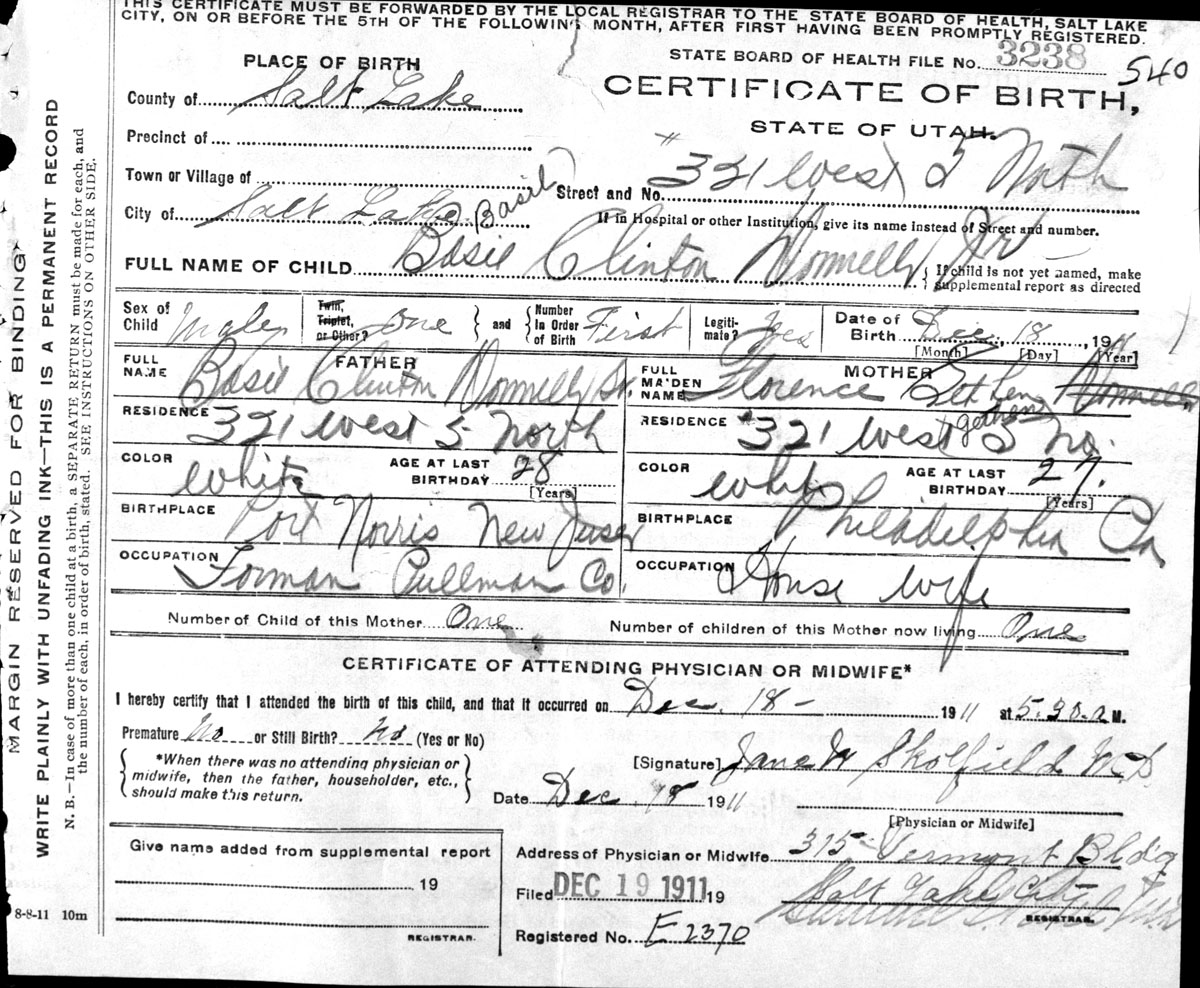 THIS CERTIFICATE MUST BE FORWARDED BY THE LOCAL REGISTRAR TO THE STATE BOARD OF HEALTH, SALT LAKE
CITY, ON OR BEFORE THE 5TH OF THE FOLLOWING MONTH, AFTER FIRST HAVING BEEN PROMPTLY REGISTERED.
MARGIN RESERVED FOR BINDING
WRITE PLAINLY WITH UNFADING INK—THIS IS A PERMANENT RECORD
N. B.—In case of more than one child at a birth, a SEPARATE RETURN must be made for each, and
the number of each, in order of birth, stated. SEE INSTRUCTIONS ON OTHER SIDE.
STATE BOARD OF HEALTH FILE No. 3238 540
PLACE OF BIRTH
CERTIFICATE OF BIRTH,
STATE OF UTAH.
County of Salt Lake
Precinct of
Town or Village of
Street and No. 321 West 5 North
City of Salt Lake
Basil
If in Hospital or other Institution, give its name instead of Street and number.
FULL NAME OF CHILD Basie Clinton Donnelly Jr
{ If child is not yet named, make
supplemental report as directed
Sex of Child Male
Twin, Triplet, or Other? One
and
Number In Order of Birth First
Legitimate? Yes
Date of Birth Dec. 18, 1911
[Month] [Day] [Year]
FATHER
FULL NAME Basie Clinton Donnelly Sr.
RESIDENCE 321 West 5 North
COLOR White
AGE AT LAST BIRTHDAY 28
[Years]
BIRTHPLACE Port Norris New Jersey
OCCUPATION Forman Pullman Co.
MOTHER
FULL MAIDEN NAME Florence Gethen Donnelly
Gethens
RESIDENCE 321 West 5 No.
COLOR White
AGE AT LAST BIRTHDAY 27.
[Years]
BIRTHPLACE Philadelphia Pa
OCCUPATION House wife
Number of Child of this Mother One
Number of children of this Mother now living One
CERTIFICATE OF ATTENDING PHYSICIAN OR MIDWIFE*
I hereby certify that I attended the birth of this child, and that it occurred on Dec. 18 - 1911 at 5.30. a M.
Premature No or Still Birth? No (Yes or No)
*When there was no attending physician or
midwife, then the father, householder, etc.,
should make this return.
[Signature] Jane W Skolfield MD
Date Dec 18 1911
[Physician or Midwife]
Give name added from supplemental report
19
REGISTRAR.
Address of Physician or Midwife 315 Vermont Bldg
Salt Lake City
Filed DEC 19 1911 19
REGISTRAR.
Registered No. E 2370
8-8-11 10m